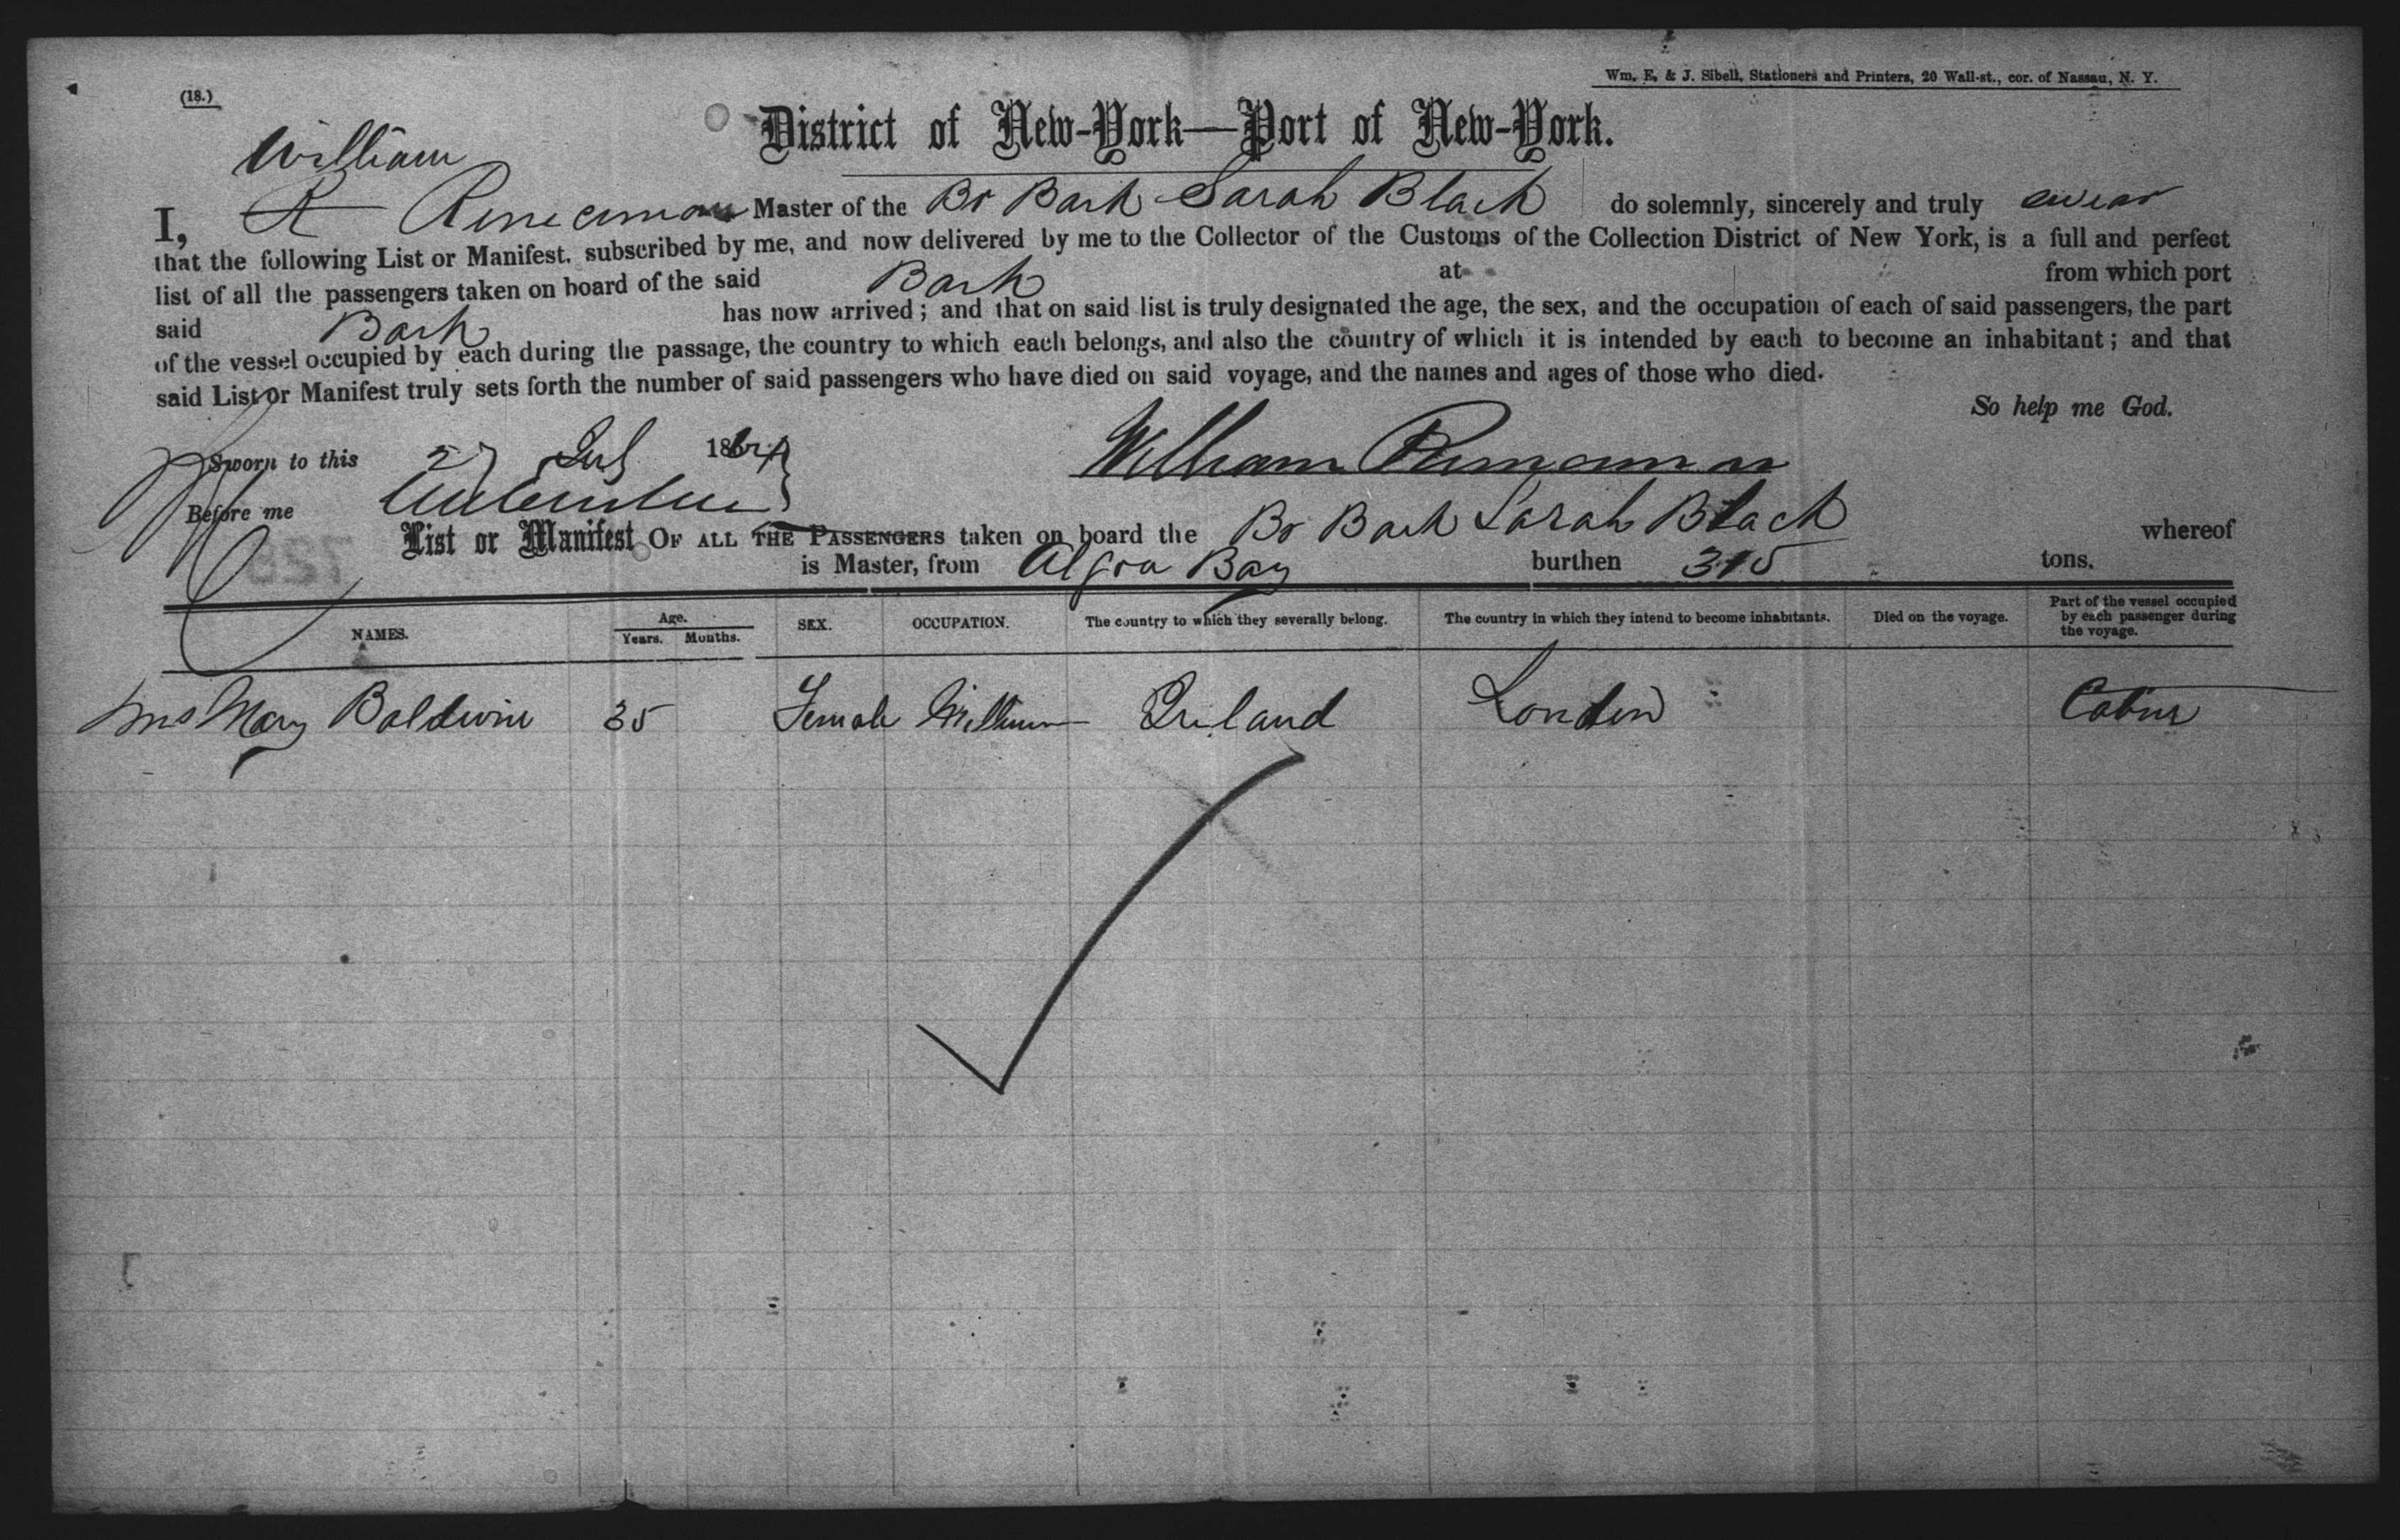 Wm. E. & J. Sibell, Stationers and Printers, 20 Wall-st., cor. of Nassau, N. Y.
(18.)
District of New-York—Port of New-York.
William
I, R Master of the Br Bark Sarah Black do solemnly, sincerely and truly swear
that the following List or Manifest, subscribed by me, and now delivered by me to the Collector of the Customs of the Collection District of New York, is a full and perfect
list of all the passengers taken on board of the said Bark at from which port
said Bark has now arrived; and that on said list is truly designated the age, the sex, and the occupation of each of said passengers, the part
of the vessel occupied by each during the passage, the country to which each belongs, and also the country of which it is intended by each to become an inhabitant; and that
said List or Manifest truly sets forth the number of said passengers who have died on said voyage, and the names and ages of those who died.
So help me God.
Sworn to this 27 July 1864
William
Before me
List or Manifest OF ALL THE PASSENGERS taken on board the Br Bark Sarah Black whereof
is Master, from Algoa Bay burthen 315 tons.
NAMES. Age. Years. Months. SEX. OCCUPATION. The country to which they severally belong. The country in which they intend to become inhabitants. Died on the voyage. Part of the vessel occupied by each passenger during the voyage.
Mrs Mary Baldwin 35 Female Ireland London Cabin